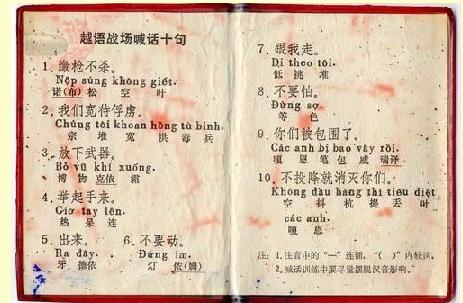 越语战场喊话十句
1. 缴枪不杀。
Nộp súng không giết.
诺(布) 松 空 叶
2. 我们宽待俘虏。
Chúng tôi khoan hồng tù binh.
宗 堆 宽 洪 毒 兵
3. 放下武器。
Bỏ vũ khí xuống.
博 物 克依 霜
4. 举起手来。
Giơ tay lên.
热 呆 连
5. 出来。 6. 不要动。
Ra đây. Đứng im.
牙 德依 仃 依(姆)
7. 跟我走。
Đi theo tôi.
低 挑
8. 不要怕。
Đừng sợ.
等 色
9. 你们被包围了。
Các anh bị bao vây rồi.
嘎 恩 笔 包 威
10. 不投降就消灭你们。
Không đầu hàng thì tiêu diệt
空 杭 提 丢 叶
các anh.
嘎 恩
注: 1. 注音中的“一”连读,“( )”内轻读。
2. 喊话训练中要尽量摆脱汉音影响。